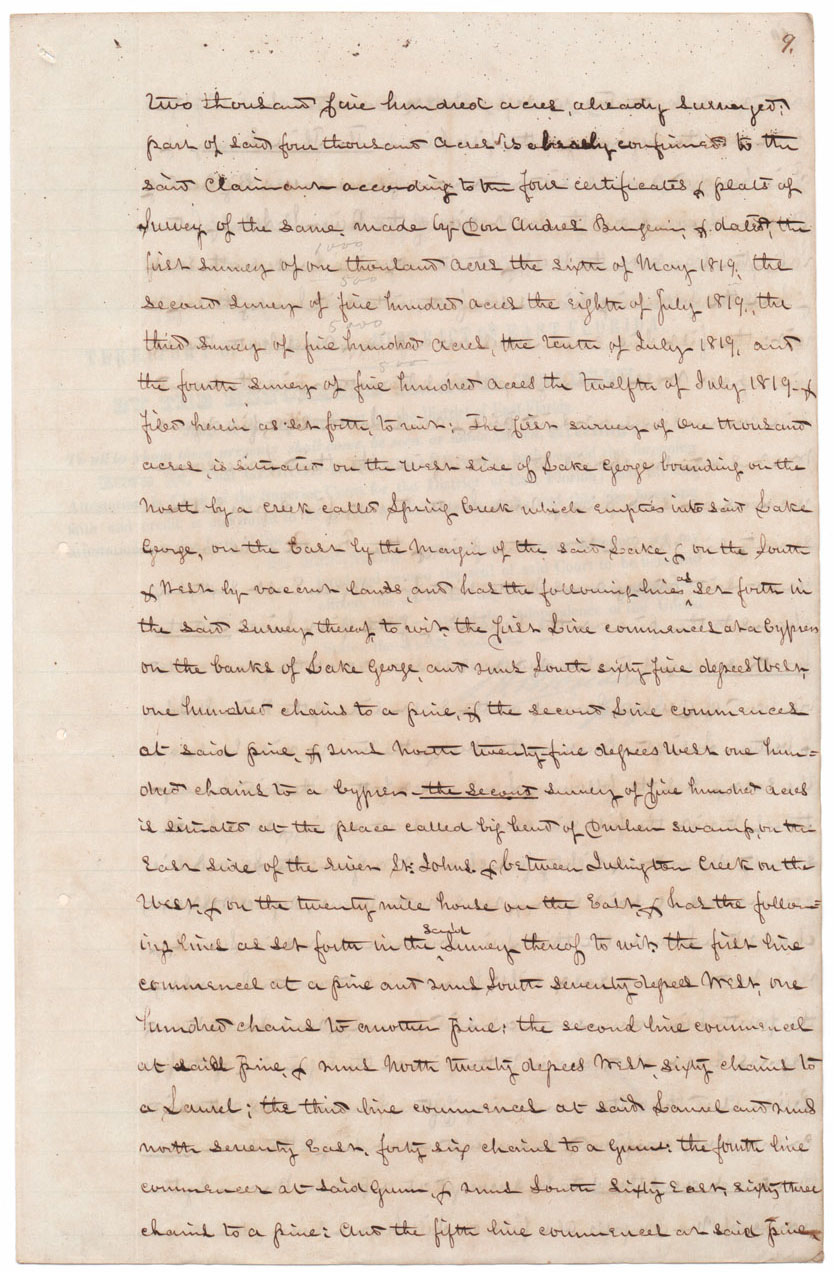 9.
two thousand five hundred acres, already surveyed;
part of said four thousand acres is hereby confirmed to the
said Claimant according to the four certificates & plats of
Survey of the same, made by Don Andres Burgevin, & dated, the
1000
first survey of one thousand acres the sixth of May 1819, the
500
second survey of five hundred acres the eighth of July 1819, the
500
third survey of five hundred acres, the tenth of July 1819, and
500
the fourth survey of five hundred acres the twelfth of July 1819 - &
filed herein as set forth, to wit: The first survey of one thousand
acres, is situated on the West side of Lake George bounding on the
North by a creek called Spring Creek which empties into said Lake
George, on the East by the Margin of the said Lake, & on the South
& West by vacant lands, and has the following lines as set forth in
the said survey thereof, to wit, the first Line commences at a Cypress
on the banks of Lake George, and runs South sixty five degrees West,
one hundred chains to a pine, & the second Line commences
at said pine, & runs North twenty-five degrees West one hun=
dred chains to a Cypress - the second survey of five hundred acres
is situated at the place called big bend of Durben swamp, on the
East side of the river St: Johns, & between Julington Creek on the
West, & on the twenty mile house on the East, & has the follow=
ing lines as set forth in the said survey thereof to wit, the first line
commences at a pine and runs South seventy degrees West, one
hundred chains to another pine: the second line commences
at said pine, & runs North twenty degrees West, sixty chains to
a Laurel; the third line commences at said Laurel and runs
north seventy East, forty six chains to a Gum: the fourth line
commences at said Gum, & runs South sixty East, sixty three
chains to a pine: And the fifth line commences at said pine